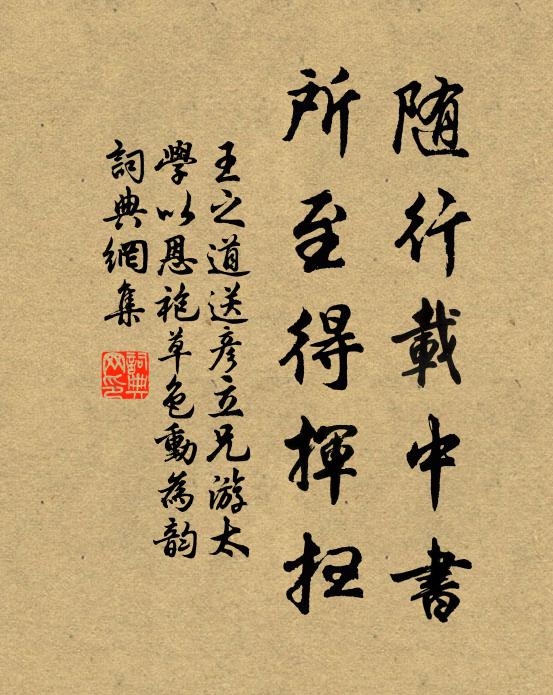 随行載中書
所至得揮扫
王之道送彦立兄游太
學以恩袍草色動為韵
詞典網集
詞典
网印